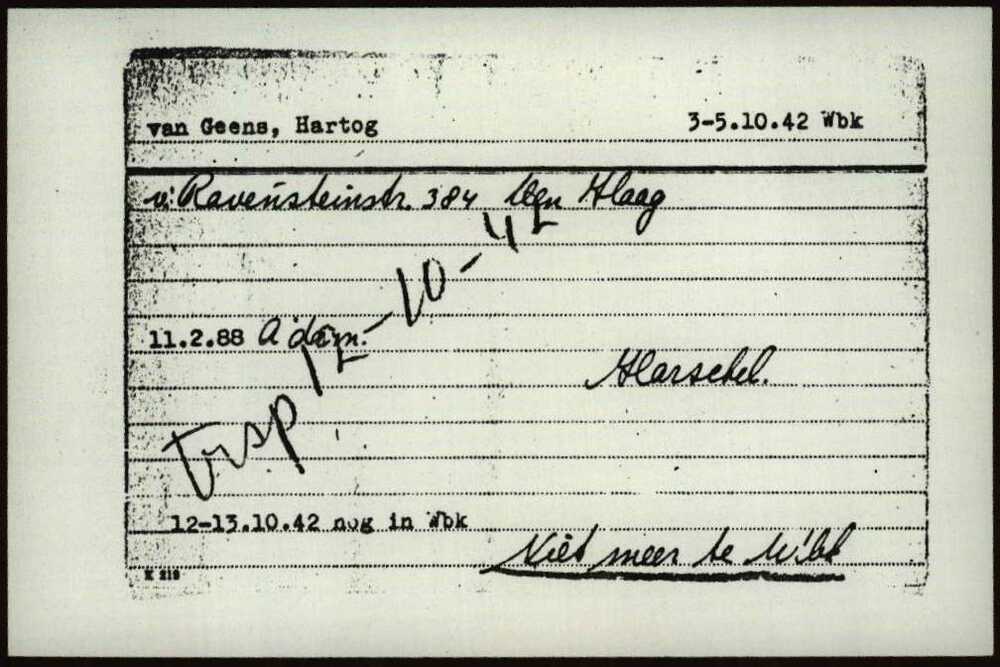 van Geens, Hartog 3-5.10.42 Wbk
v: Ravensteinstr. 384 Den Haag
11.2.88 A'dam.
Trsp 12-10-42
12-13.10.42 nog in Wbk
Niet meer te W'bk
K 219